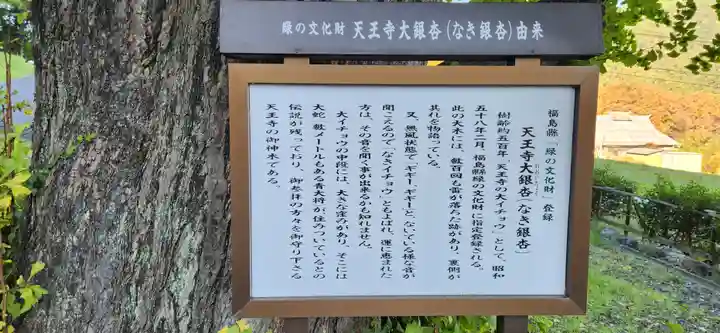 緑の文化財 天王寺大銀杏(なき銀杏)由来
福島縣「緑の文化財」登録
天王寺大銀杏(なき銀杏)
樹齢約五百年、天王寺の大イチョウとして、昭和
五十八年二月、福島縣緑の文化財に指定登録される。
此の大木には、数百回も雷が落ちた跡があり、裏側が
其れを物語っている。
又、無風状態で「ギギー、ギギー」と、ないている様な音が
聞こえるので、「なきイチョウ」ともよばれ、運に恵まれた
方は、その音を聞く事が出来るかも知れません。
大イチョウの中段には、大きな窪みがあり、そこには
大蛇、数メートルもある青大将が住みついているとの
伝説が残っており、御参拝の方々を御守り下さる
天王寺の御神木である。